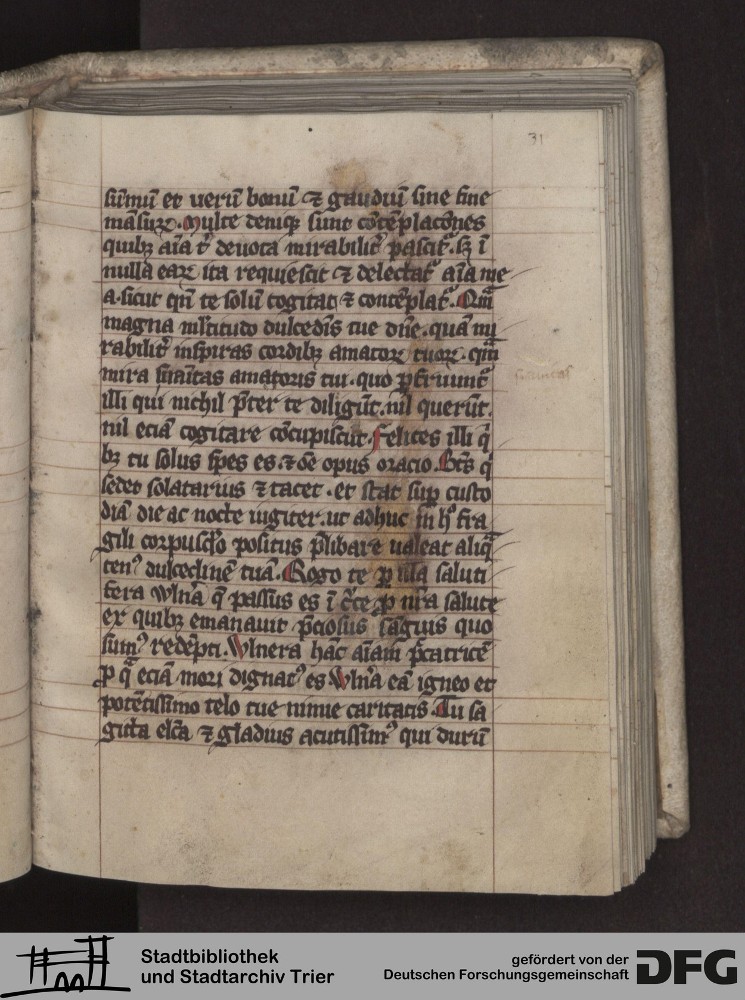 31
sūmū et uerū bonū ⁊ gaudiū sine fine
māsurꝝ. Multe deniqꝫ sunt cōtēplacōnes
quibꝫ aīa t̉ deuota mirabilit̉ pascit᷑. sꝫ ī
nulla eaꝝ ita requiescit ⁊ delectat᷑ aīa me
a. sicut qn̄ te solū cogitat ⁊ contēplat᷑. Qm̄
magna ml̄titudo dulcedīs tue dn̄e. quā mi
rabilit̉ inspiras cordibꝫ amatoꝝ tuoꝝ. qm̄
mira suauitas amatoris tui. quo ꝑfruunt᷑
illi qui nichil p̄ter te diligūt. nil querūt.
nil eciā cogitare cōcupiscūt. Felices illi q̉
bꝫ tu solus spes es. ⁊ oē opus oracio. Bt̄s q̉
sedet solatarius ⁊ tacet. et stat suꝑ custo
diā die ac nocte iugiter. ut adhuc in hͦ fra
gili corpusc̄lo positus p̄libare ualeat aliq̄
tenꝰ dulcedinē tuā. Rogo te ꝑ illa saluti
fera wlnā q̄ passus es ī c̉ce ꝓ nr̄a salute
ex quibꝫ emanauit p̄ciosus sāguis quo
sumꝰ redēpti. Wlnera hāc aīam p̄catricē
ꝓ q̄ eciā mori dignatꝰ es Wlnā eā igneo et
potētissimo telo tue nimie caritatis. Tu sa
gitta elc̄a ⁊ gladius acutissimꝰ qui durū
Stadtbibliothek
und Stadtarchiv Trier
gefördert von der
Deutschen Forschungsgemeinschaft
DFG